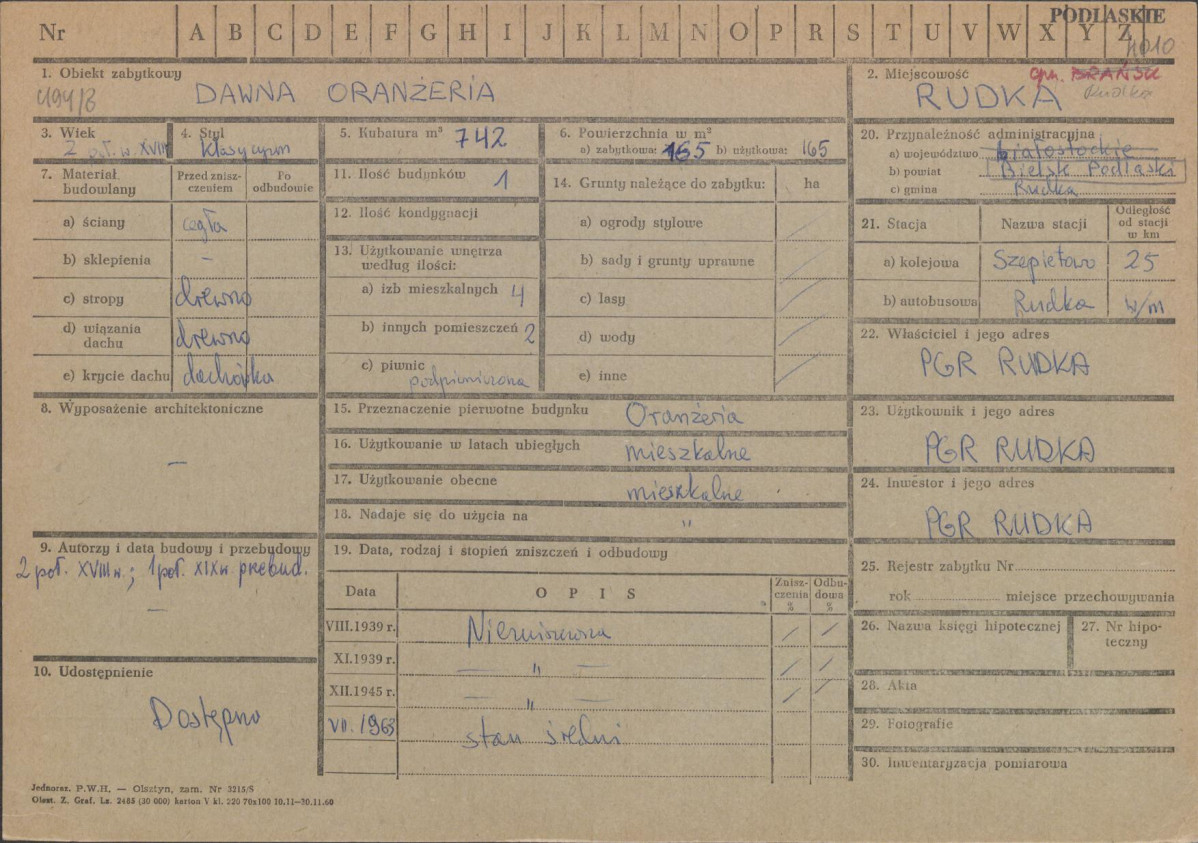 PODLASKIE
Nr A B C D E F G H I J K L M N O P R S T U V W X Y Z
4010
1. Obiekt zabytkowy
DAWNA ORANŻERIA
494/B
2. Miejscowość
gm. BRAŃSK
Rudka
RUDKA
3. Wiek
2 poł. w. XVIII
4. Styl
klasycyzm
5. Kubatura m³ 742
6. Powierzchnia w m²
a) zabytkowa: 165 b) użytkowa: 165
7. Materiał budowlany
Przed zniszczeniem
Po odbudowie
a) ściany cegła
b) sklepienia –
c) stropy drewno
d) wiązania dachu drewno
e) krycie dachu dachówka
8. Wyposażenie architektoniczne
—
9. Autorzy i data budowy i przebudowy
2 poł. XVIII w.; 1 poł. XIX w. przebud.
—
10. Udostępnienie
Dostępno
11. Ilość budynków 1
12. Ilość kondygnacji
13. Użytkowanie wnętrza
według ilości:
a) izb mieszkalnych 4
b) innych pomieszczeń 2
c) piwnic
podpiwniczona
14. Grunty należące do zabytku: ha
a) ogrody stylowe /
b) sady i grunty uprawne /
c) lasy /
d) wody /
e) inne /
15. Przeznaczenie pierwotne budynku Oranżeria
16. Użytkowanie w latach ubiegłych mieszkalne
17. Użytkowanie obecne mieszkalne
18. Nadaje się do użycia na "
19. Data, rodzaj i stopień zniszczeń i odbudowy
Data OPIS Zniszczenia % Odbudowa %
VIII.1939 r. Niezniszczona / /
XI.1939 r. — " — / /
XII.1945 r. — " — / /
VII. 1963 stan średni
20. Przynależność administracyjna
a) województwo białostockie
b) powiat Bielsk Podlaski
c) gmina Rudka
21. Stacja Nazwa stacji Odległość od stacji w km
a) kolejowa Szepietowo 25
b) autobusowa Rudka w/m
22. Właściciel i jego adres
PGR RUDKA
23. Użytkownik i jego adres
PGR RUDKA
24. Inwestor i jego adres
PGR RUDKA
25. Rejestr zabytku Nr
rok miejsce przechowywania
26. Nazwa księgi hipotecznej
27. Nr hipoteczny
28. Akta
29. Fotografie
30. Inwentaryzacja pomiarowa
Jednoraz. P.W.H. — Olsztyn, zam. Nr 3215/S
Olszt. Z. Graf. Lz. 2485 (30 000) karton V kl. 220 70x100 10.11—30.11.60